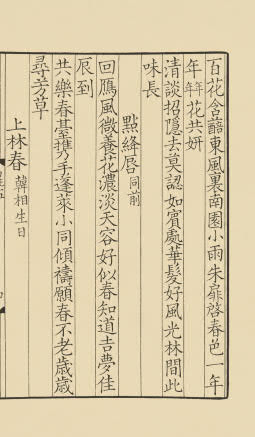 百花含譆東風裏南園小雨朱扉啓春色一年
年年花共妍
清談招隱去莫認如賓處華髮好風光林間此
味長
點絳唇同前
回鴈風微養花濃淡天容好似春知道吉夢佳
辰到
共樂春臺携手蓬萊小同傾禱願春不老歲歲
尋芳草
上林春韓相生日